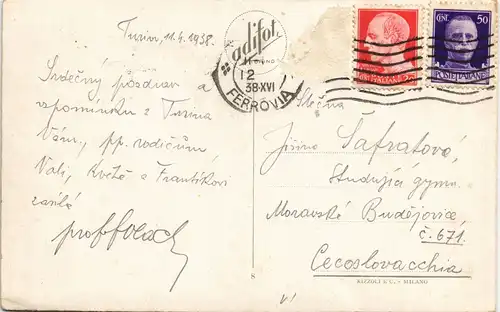 Turin, 11.4.1938.
Srdečný pozdrav a
vzpomínku z Turina
Vám, pp. rodičům,
Vali, Květě a Frantíkovi
zasílá
prof
adifot
12
38·XVI
FERROVIA
CENT. 50
POSTE ITALIANE
Slečna
Jiřina Šafratová,
studující gymn.
Moravské Budějovice,
č. 671.
Cecoslovacchia
8
RIZZOLI & C. - MILANO